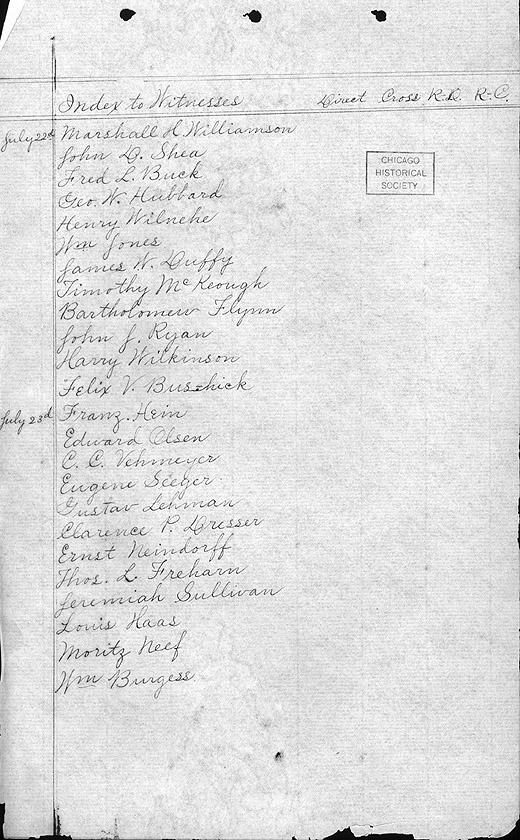 Index to Witnesses Direct Cross R.D. R-C.
July 22d Marshall H Williamson
John D. Shea
Fred L. Buck
Geo. W. Hubbard
Henry Wilneke
Wm Jones
James W. Duffy
Timothy McKeough
Bartholomew Flynn
John J. Ryan
Harry Wilkinson
Felix V. Buschick
July 23d Franz. Hein
Edward Olsen
C. C. Vehmeyer
Eugene Seeger
Gustav Lehman
Clarence P. Dresser
Ernst Neindorff
Thos. L. Treharn
Jeremiah Sullivan
Louis Haas
Moritz Neef
Wm Burgess
CHICAGO
HISTORICAL
SOCIETY